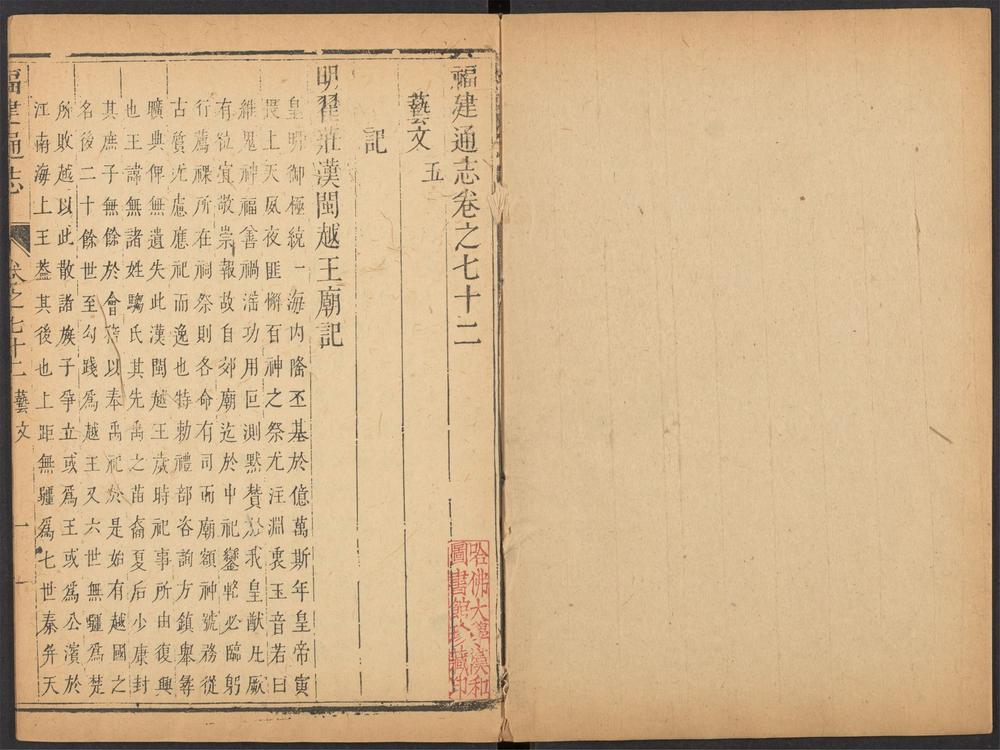 福建通志卷之七十二
藝文五
記
明翟莊漢閩越王廟記
皇明御極統一海内隆丕基於億萬斯年皇帝寅
畏上天夙夜匪懈百神之祭尤注淵衷玉音若曰
維鬼神福善禍淫功用叵測默贊於我皇猷凡厥
有位宜敬崇報故自郊廟迄於中祀鑾輅必臨躬
行薦祼所在祠祭則各命有司而廟額神號務從
古質尤慮應祀而逸也特勅禮部咨詢方鎮舉彝
曠典俾無遺失此漢閩越王歲時祀事所由復興
也王諱無諸姓騶氏其先禹之苗裔夏后少康封
其庶子無餘於會稽以奉禹祀於是始有越國之
名後二十餘世至勾踐爲越王又六世無疆爲楚
所敗越以此散諸族子爭立或爲王或爲公濱於
江南海上王蓋其後也上距無疆爲七世秦并天
福建通志
卷之七十二
藝文
一
哈佛大學漢和
圖書館珍藏印